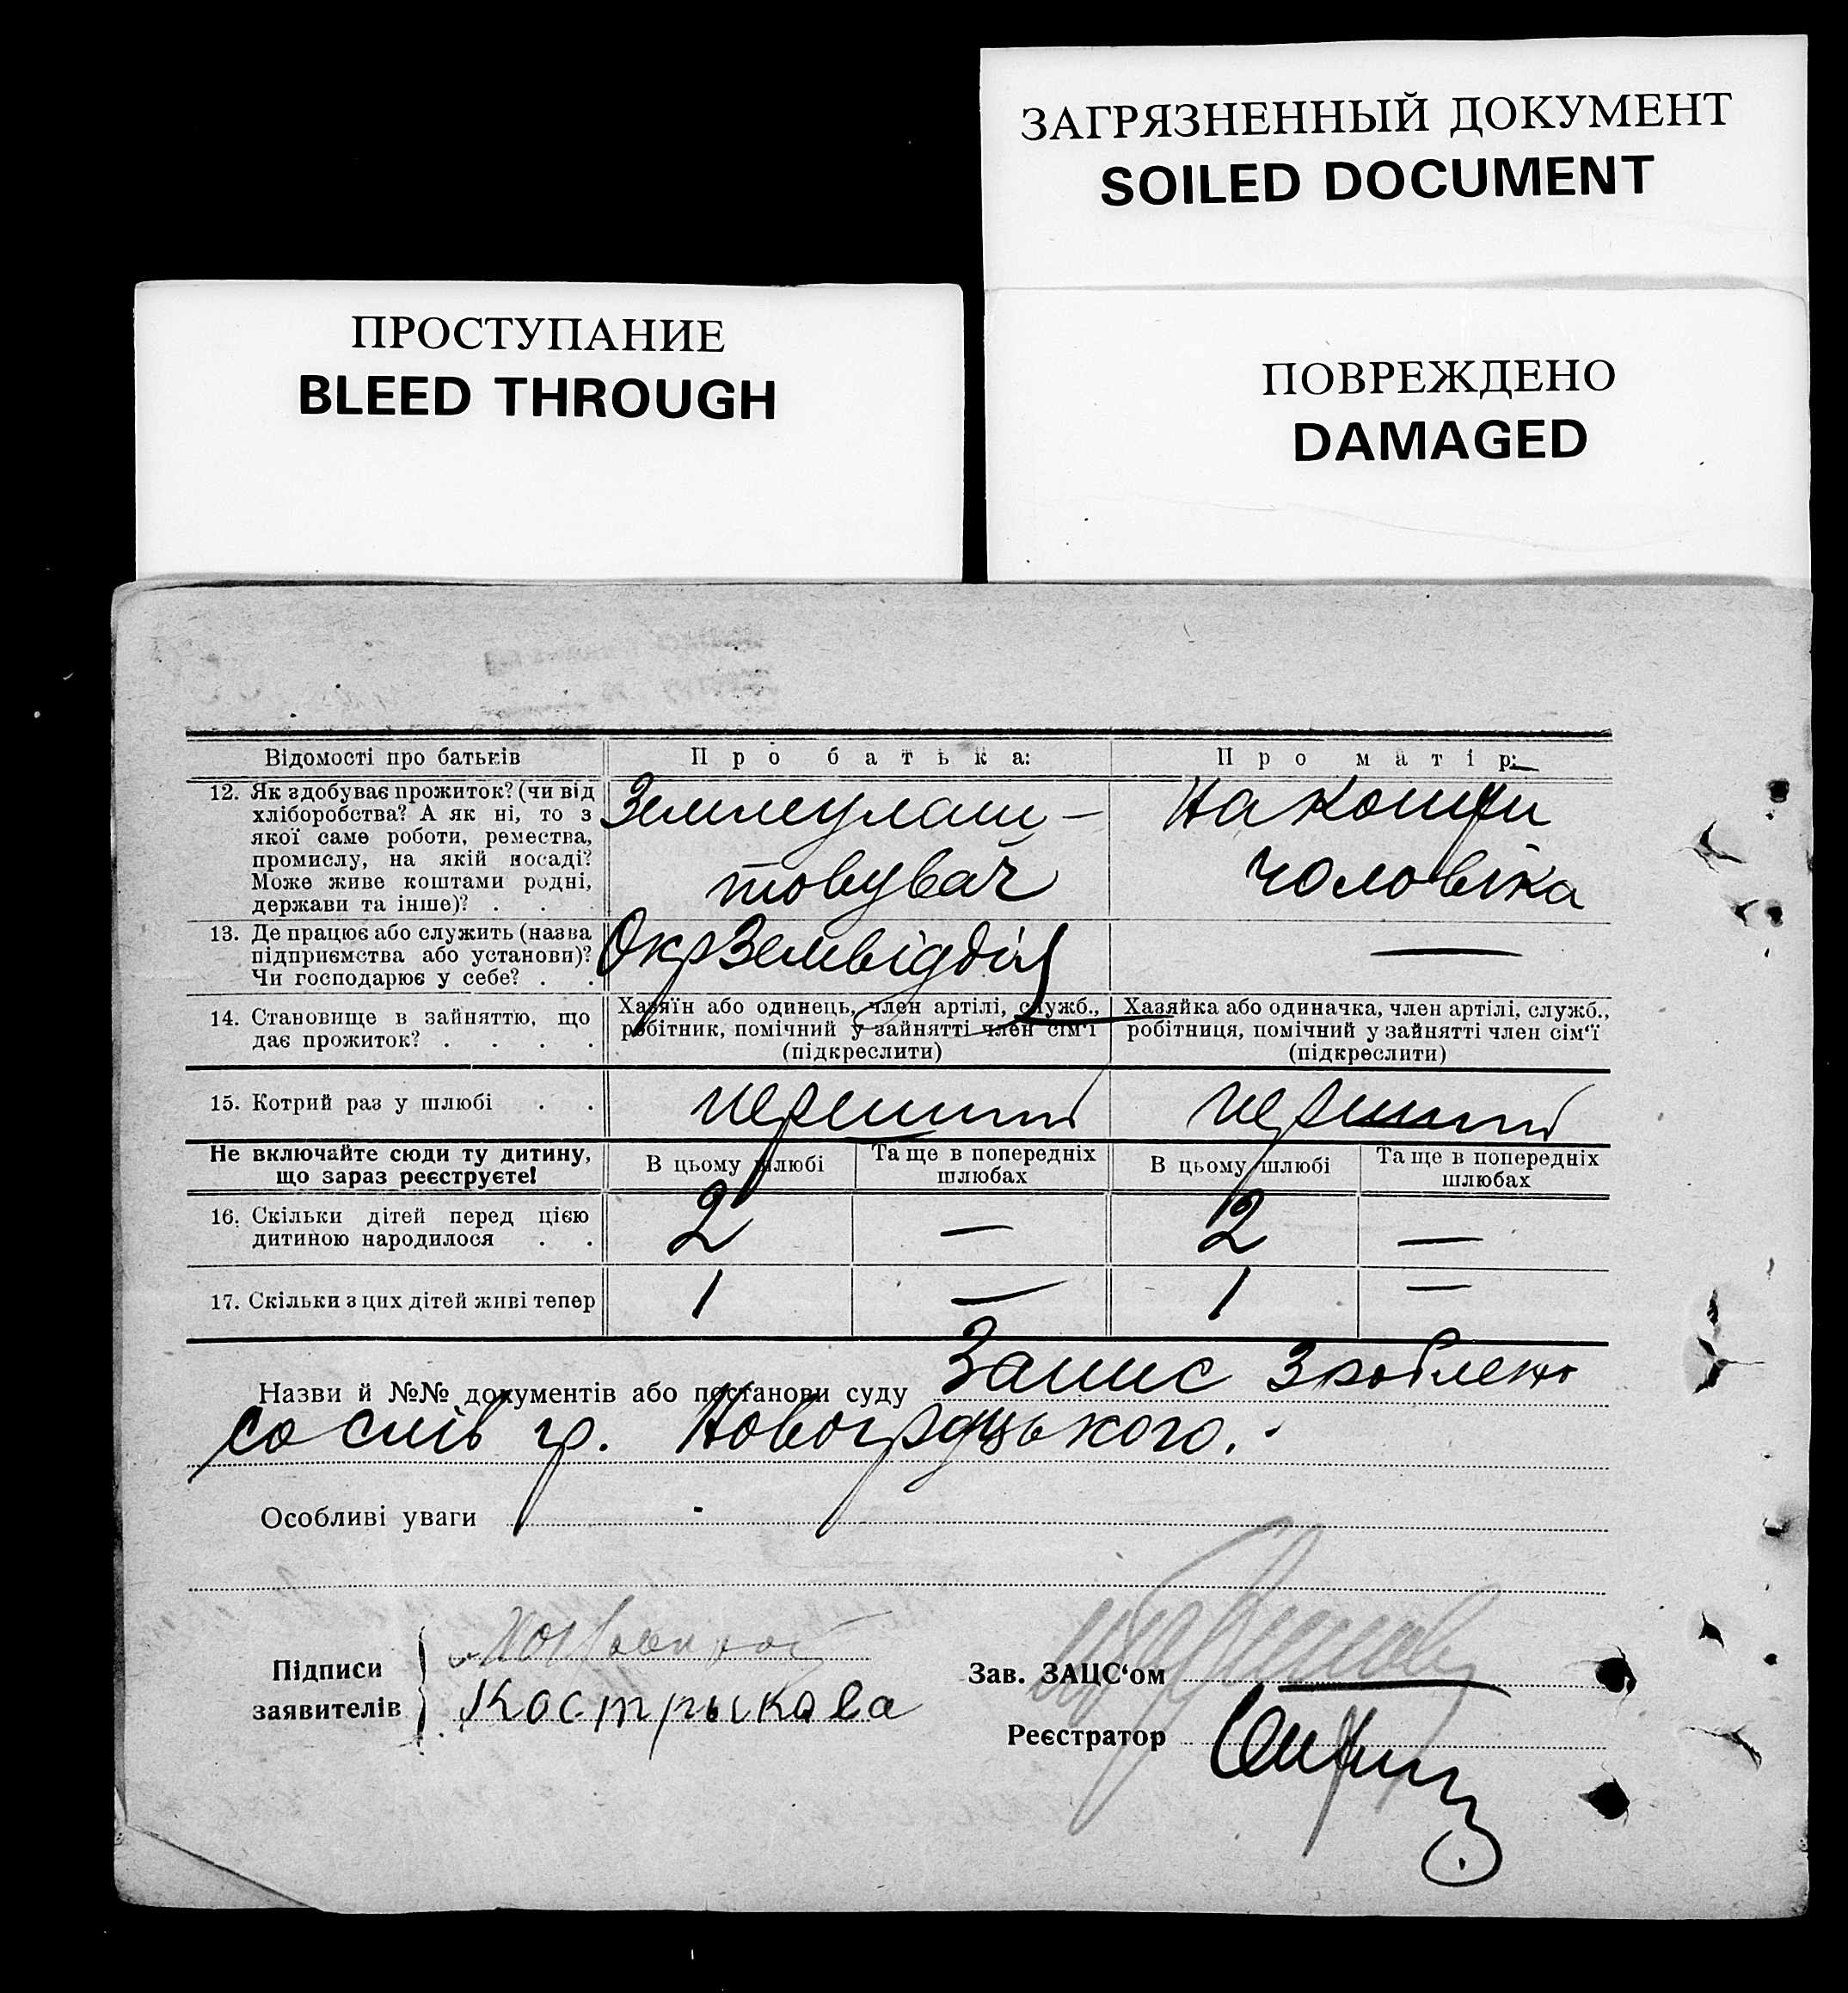 ЗАГРЯЗНЕННЫЙ ДОКУМЕНТ
SOILED DOCUMENT
ПРОСТУПАНИЕ
BLEED THROUGH
ПОВРЕЖДЕНО
DAMAGED
Відомості про батьків
Про батька:
Про матір:
12. Як здобуває прожиток? (чи від
хліборобства? А як ні, то з
якої саме роботи, ремества,
промислу, на якій посаді?
Може живе коштами родні,
держави та інше)? . . .
Землеулаш-
товувач
На кошти
чоловіка
13. Де працює або служить (назва
підприємства або установи)?
Чи господарює у себе? . .
ОкрЗемвідділ
—
14. Становище в зайняттю, що
дає прожиток? . . . .
Хазяїн або одинець, член артілі, служб.,
робітник, помічний у зайнятті член сім'ї
(підкреслити)
Хазяйка або одиначка, член артілі, служб.,
робітниця, помічний у зайнятті член сім'ї
(підкреслити)
15. Котрий раз у шлюбі . .
перший
перший
Не включайте сюди ту дитину,
що зараз реєструєте!
В цьому шлюбі
Та ще в попередніх
шлюбах
В цьому шлюбі
Та ще в попередніх
шлюбах
16. Скільки дітей перед цією
дитиною народилося . .
2 — 2 —
17. Скільки з цих дітей живі тепер
1 — 1 —
Назви й №№ документів або постанови суду Запис зроблено
со слів гр. Новогрудського.
Особливі уваги
Підписи
заявителів
Кострыкова
Зав. ЗАЦС'ом
Реєстратор